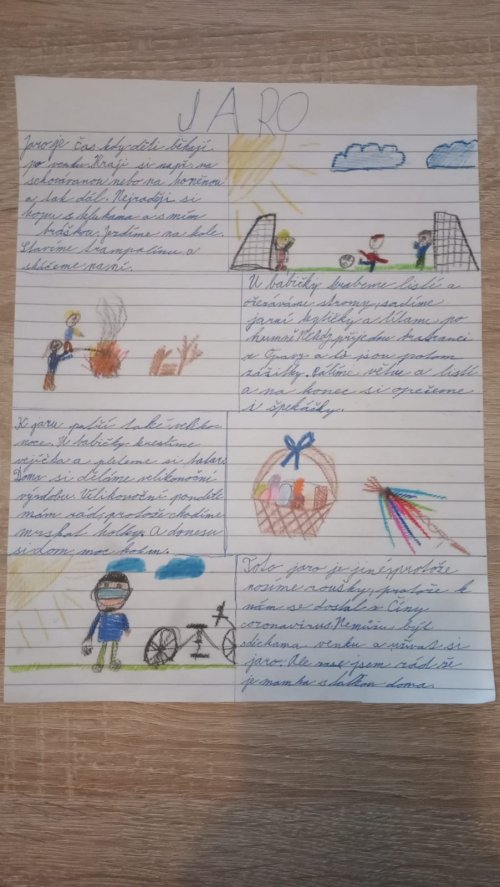 JARO
Jaro je čas kdy děti běhají
po venku. Hrají si např. na
schovávanou nebo na honěnou
a tak dál. Nejraději si
kopu s klukama a s mím
bráškou. Jezdíme na kole.
Stavíme trampolínu a
skáčeme na ní.
U babičky hrabeme listí a
ořezáváme stromy, sadíme
jarní kytičky a lítám po
humně. Někdy přijedou bratranci
z Opavy a to jsou potom
zážitky. Pálíme větve a listí
a na konec si opečeme
i špekáčky.
K jaru patří také veliko-
noce. U babičky kreslíme
vejíčka a pleteme si tatar.
Doma si děláme velikonoční
výrobky. Velikonoční pondělí
mám rád, protože chodíme
mrskat holky. A donesu
si dom moc
Toto jaro je jiné, protože
nosíme roušky, protože k
nám se dostal z Číny
coronavirus. Nemůžu být
s klukama venku a užívat si
jaro. Ale zase jsem rád že
je mamka s taťkou doma.